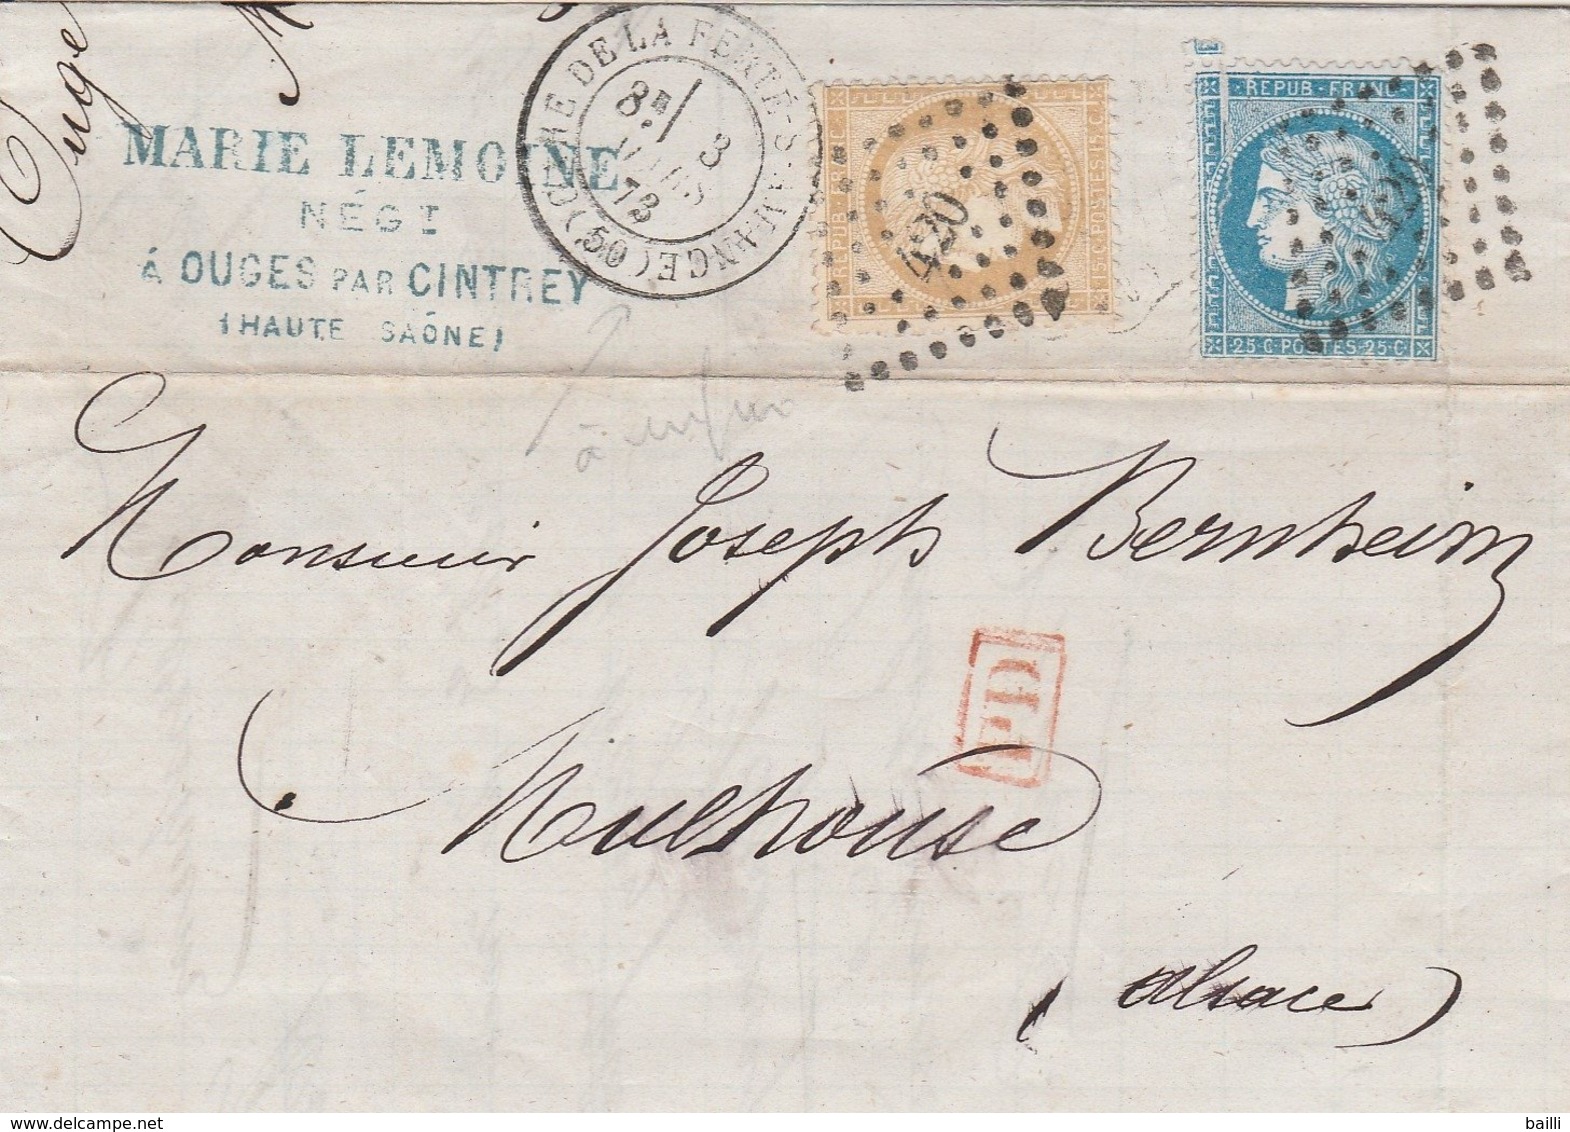 Ouge
MARIE LEMOINE
NÉGT
À OUGES PAR CINTREY
(HAUTE SAÔNE)
LA FERTÉ-S-AMANCE (50)
8E 3 MARS 73
REPUB-FRANC
15 C POSTES 15 C
420
E
REPUB-FRANC
25 C POSTES 25 C
420
à
Monsieur Joseph Bernheim
PD
Mulhouse
(Alsace)
bailli